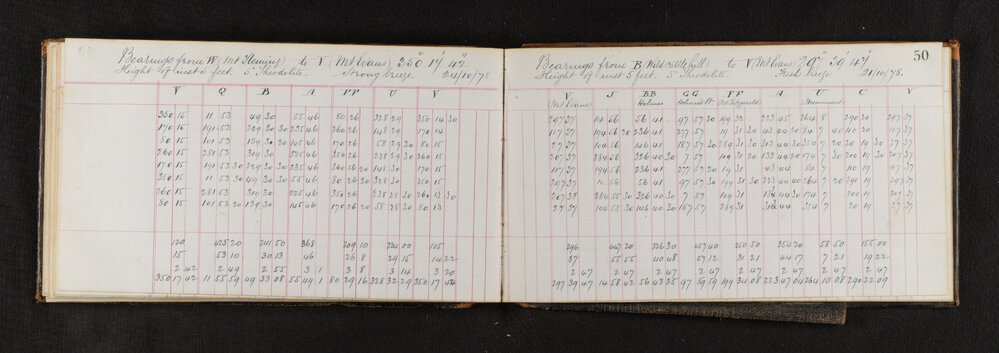 Bearings from W (Mt Fleming) to V (Mt Evans) 350° 17' 42"
Height of inst 5 feet. 5" Theodolite. Strong breeze. 24/10/78
V Q B A FF U V
350 15 11 53 49 30 55 46 80 26 328 29 350 14 30
170 15 191 53 229 30 30 235 46 260 26 148 29 170 14
80 15 101 53 139 30 20 145 46 170 26 58 29 20 80 15
260 15 281 53 319 30 325 46 350 26 238 29 30 260 15
170 15 191 53 30 229 30 30 235 46 260 26 20 148 30 170 15
350 15 11 53 30 49 30 30 55 46 80 26 30 328 30 350 15
260 15 281 53 319 30 325 46 350 26 238 28 30 260 13 30
80 15 101 53 20 139 30 145 46 170 26 20 58 28 30 80 13
120 425 20 241 50 368 209 10 234 00 115
15 53 10 30 13 46 26 8 29 15 14 22
2 42 2 49 2 55 3 1 3 8 3 14 3 20
350 17 42 11 55 59 49 33 08 55 49 1 80 29 16 328 32 29 350 17 42
50
Bearings from B (Wild cattle hill) to V (Mt Evans) 297° 39' 47"
Height of inst 5 feet. 5" Theodolite. Fresh breeze 21/10/78.
V J BB GG FF A U C V
(Mt Evans) Holmes Holmes's Pt. (Mt Fitzgerald) (Monument)
297 37 14 56 56 41 97 57 20 199 32 223 45 264 8 290 20 297 37
117 37 194 56 20 236 41 277 57
27 37 104 56 146 41 187 57 30
207 37 284 56 326 40 30 7 57
117 37 194 56 236 41 277 57 20
297 37 14 56 56 41 97 57 30
207 38 284 55 30 326 40 30 7 57
27 37 104 55 30 146 40 30 187 57 289 31
296 447 20 326 30 457 40 250 50 354 20 58 50 155 00
37 55 55 40 48 57 12 31 21 44 17 7 21 19 22
2 47 2 47 2 47 2 47 2 47 2 47 2 47 2 47
297 39 47 14 58 42 56 43 35 97 59 59 199 34 08 223 47 04 264 10 08 290 22 09